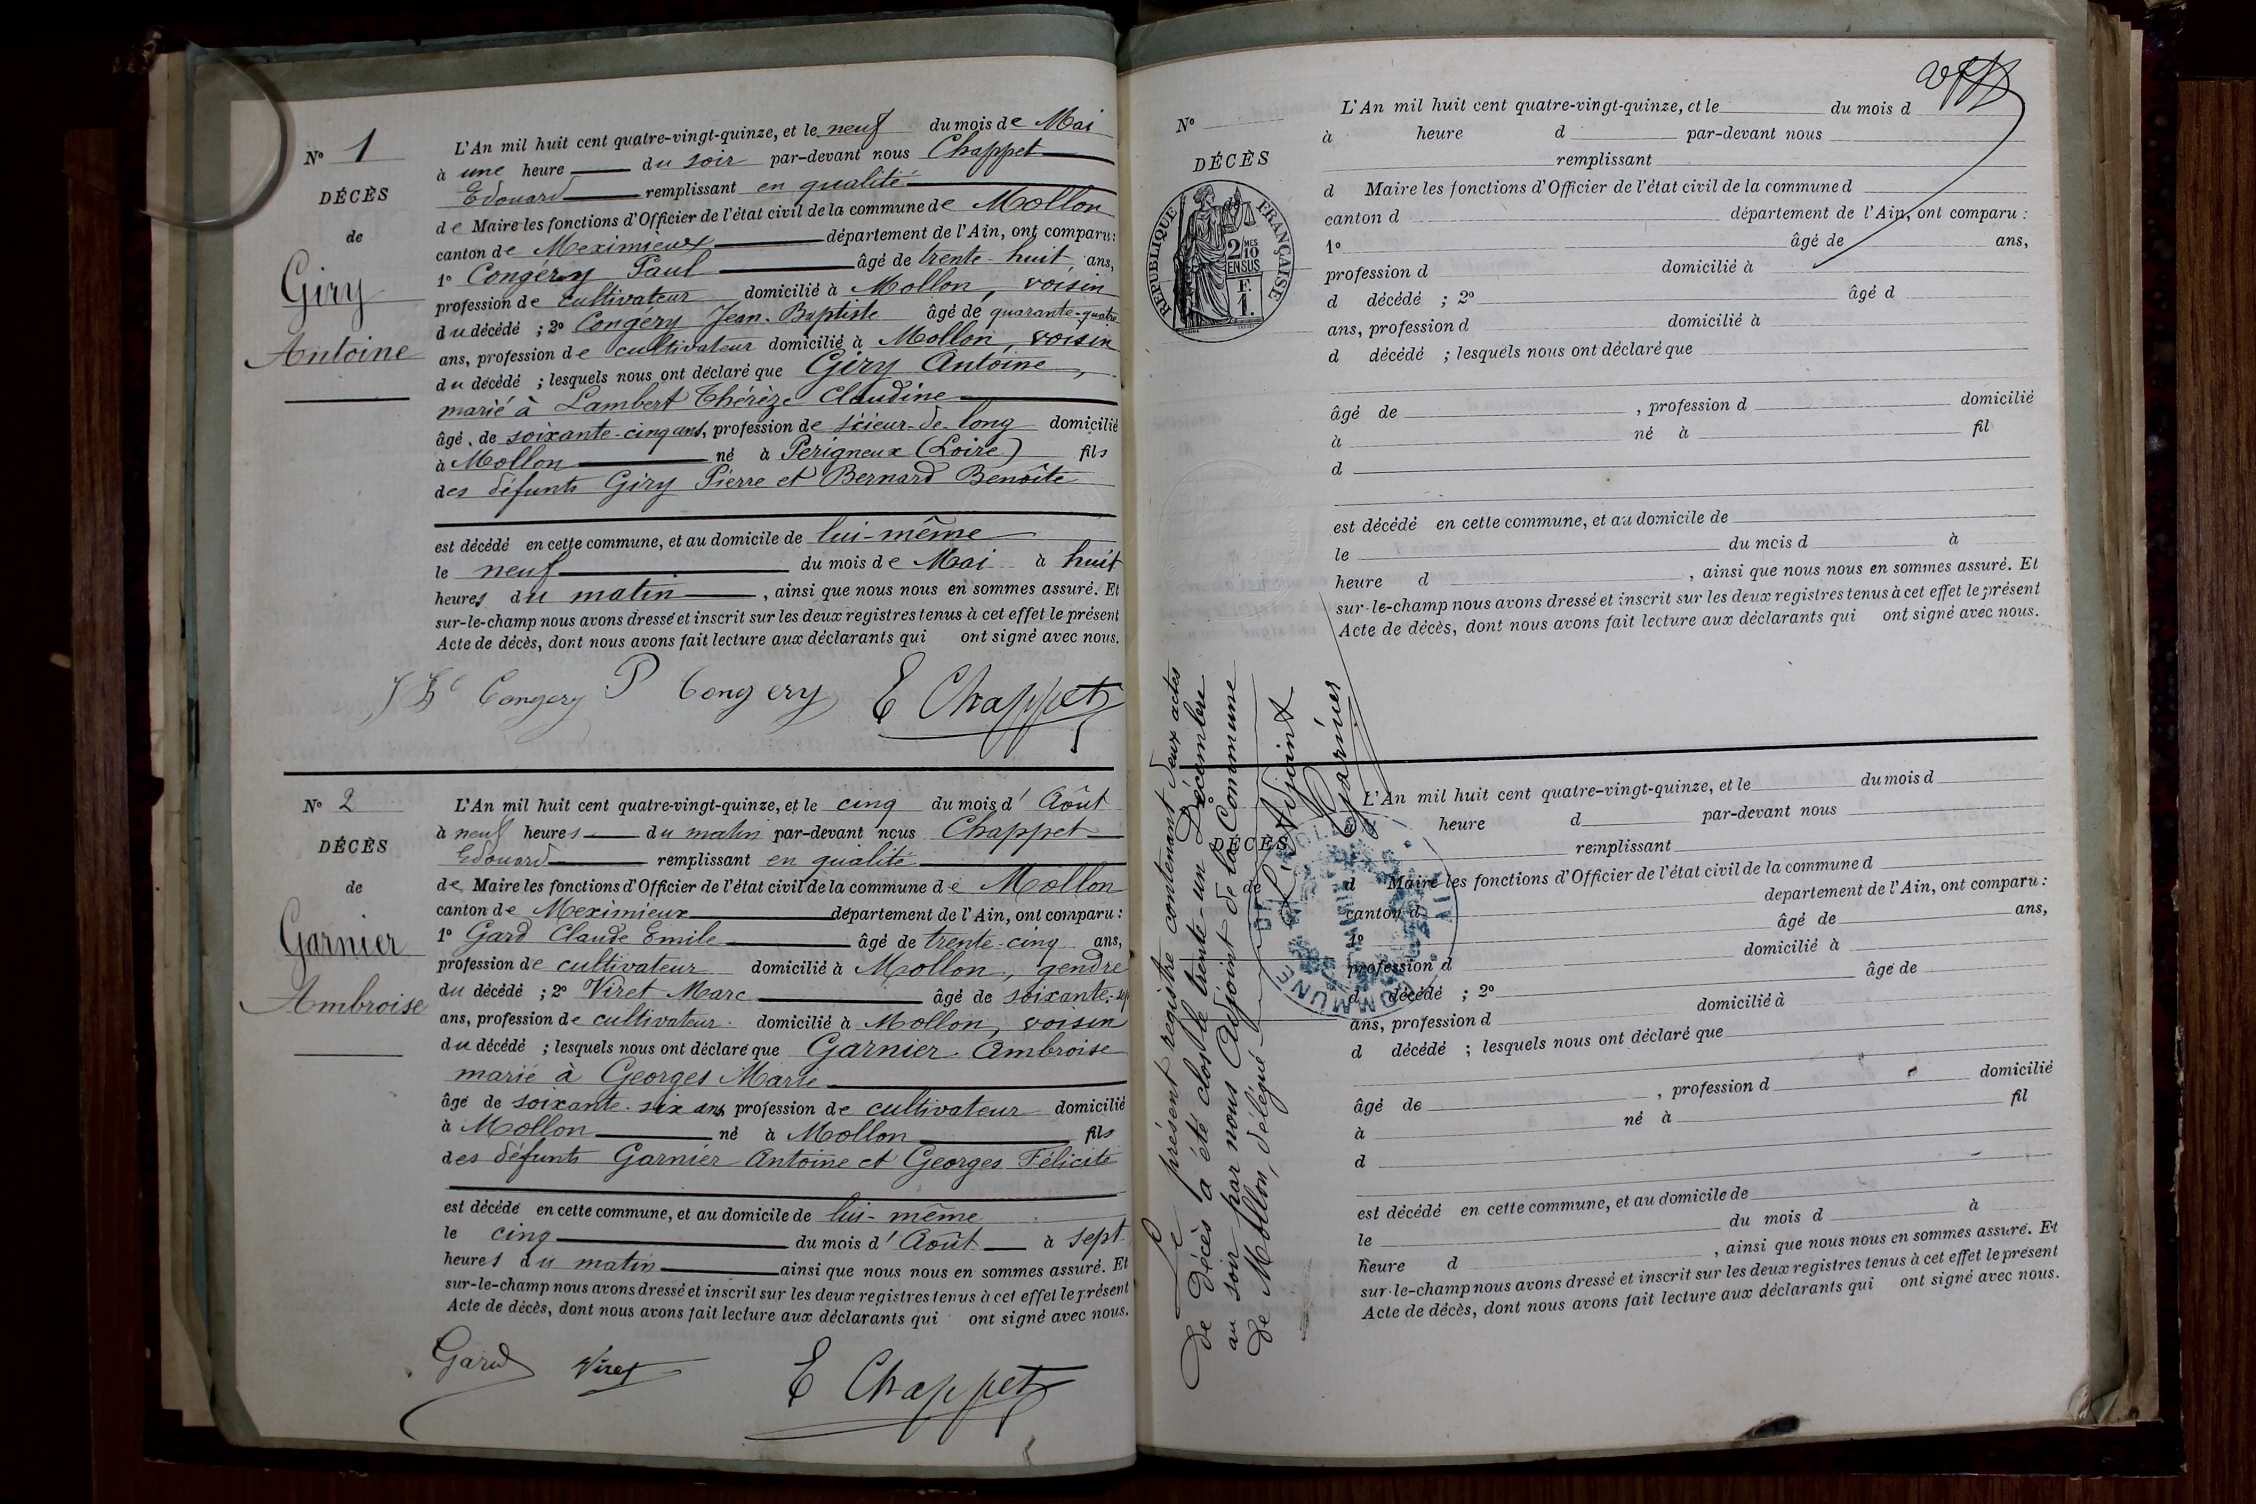 N° 1
DÉCÈS
de
Giry
Antoine
L'An mil huit cent quatre-vingt-quinze, et le neuf du mois de Mai
à une heure du soir par-devant nous Chappet
Edouard remplissant en qualité
de Maire les fonctions d'Officier de l'état civil de la commune de Mollon
canton de Meximieux département de l'Ain, ont comparu:
1° Congéry Paul âgé de trente-huit ans,
profession de cultivateur domicilié à Mollon, voisin
du décédé ; 2° Congéry Jean-Baptiste âgé de quarante-quatre
ans, profession de cultivateur domicilié à Mollon, voisin
du décédé ; lesquels nous ont déclaré que Giry Antoine,
marié à Lambert Thérèze Claudine
âgé de soixante-cinq ans, profession de scieur-de-long domicilié
à Mollon né à Périgneux (Loire) fils
des défunts Giry Pierre et Bernard Benoîte
est décédé en cette commune, et au domicile de lui-même
le neuf du mois de Mai à huit
heures du matin, ainsi que nous nous en sommes assuré. Et
sur-le-champ nous avons dressé et inscrit sur les deux registres tenus à cet effet le présent
Acte de décès, dont nous avons fait lecture aux déclarants qui ont signé avec nous.
Congery P Congery E Chappet
N° 2
DÉCÈS
de
Garnier
Ambroise
L'An mil huit cent quatre-vingt-quinze, et le cinq du mois d'Août
à neuf heures du matin par-devant nous Chappet
Edouard remplissant en qualité
de Maire les fonctions d'Officier de l'état civil de la commune de Mollon
canton de Meximieux département de l'Ain, ont comparu :
1° Gard Claude Emile âgé de trente-cinq ans,
profession de cultivateur domicilié à Mollon, gendre
du décédé ; 2° Viret Marc âgé de soixante-sept
ans, profession de cultivateur domicilié à Mollon, voisin
du décédé ; lesquels nous ont déclaré que Garnier Ambroise
marié à Georges Marie
âgé de soixante-six ans profession de cultivateur domicilié
à Mollon né à Mollon fils
des défunts Garnier Antoine et Georges Félicité
est décédé en cette commune, et au domicile de lui-même
le cinq du mois d'Août à sept
heures du matin ainsi que nous nous en sommes assuré. Et
sur-le-champ nous avons dressé et inscrit sur les deux registres tenus à cet effet le présent
Acte de décès, dont nous avons fait lecture aux déclarants qui ont signé avec nous.
Gard Viret E Chappet
N°
DÉCÈS
RÉPUBLIQUE FRANÇAISE
2/10
EN SUS
F.
1.
L'An mil huit cent quatre-vingt-quinze, et le du mois d
à heure d par-devant nous
remplissant
d Maire les fonctions d'Officier de l'état civil de la commune d
canton d département de l'Ain, ont comparu :
1° âgé de ans,
profession d domicilié à
d décédé ; 2° âgé d
ans, profession d domicilié à
d décédé ; lesquels nous ont déclaré que
âgé de , profession d domicilié
à né à fil
d
est décédé en cette commune, et au domicile de
le du mois d à
heure d , ainsi que nous nous en sommes assuré. Et
sur-le-champ nous avons dressé et inscrit sur les deux registres tenus à cet effet le présent
Acte de décès, dont nous avons fait lecture aux déclarants qui ont signé avec nous.
Le présent registre contenant deux actes
de décès a été clos le trente-un Décembre
au soir par nous Adjoint de la Commune
de Mollon, délégué
L'Adjoint
Garnier
DÉCÈS
de
L'An mil huit cent quatre-vingt-quinze, et le du mois d
heure d par-devant nous
remplissant
d Maire les fonctions d'Officier de l'état civil de la commune d
canton d département de l'Ain, ont comparu :
1° âgé de ans,
profession d domicilié à
d décédé ; 2° âgé de
ans, profession d domicilié à
d décédé ; lesquels nous ont déclaré que
âgé de , profession d domicilié
à né à fil
d
est décédé en cette commune, et au domicile de
le du mois d à
heure d , ainsi que nous nous en sommes assuré. Et
sur-le-champ nous avons dressé et inscrit sur les deux registres tenus à cet effet le présent
Acte de décès, dont nous avons fait lecture aux déclarants qui ont signé avec nous.